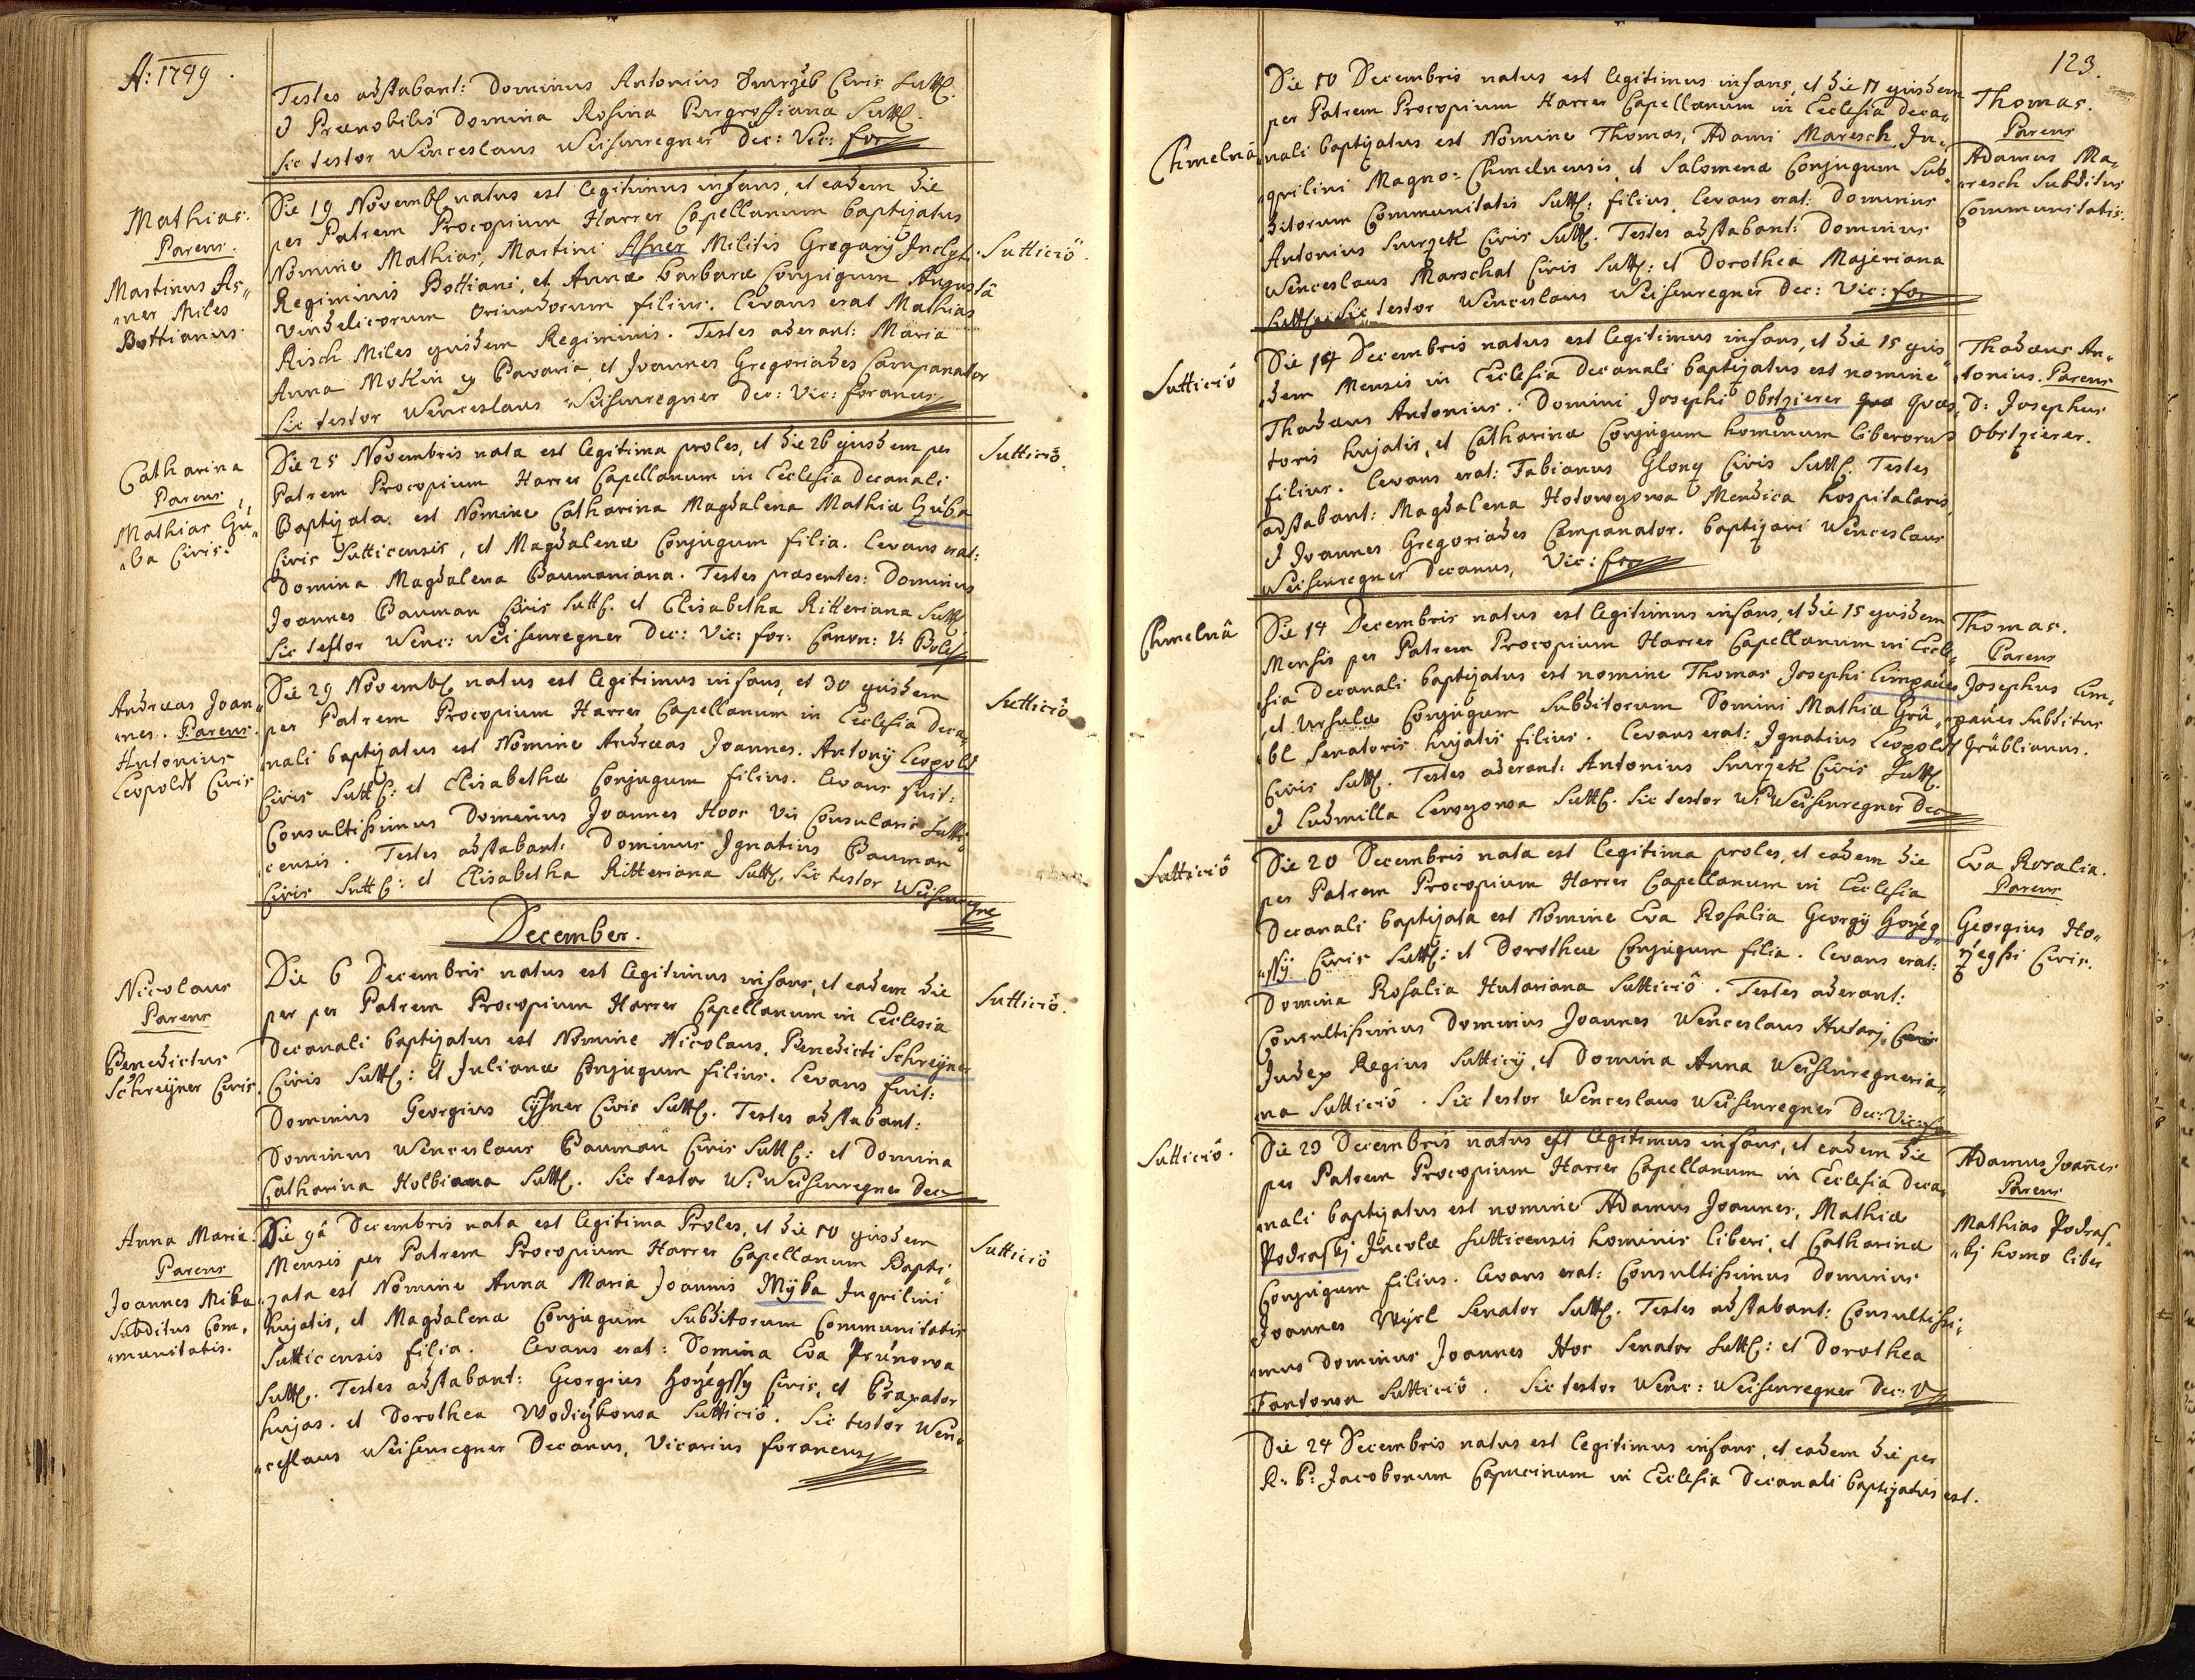 A: 1749.
Testes adstabant: Dominus Antonius Smrzeb Civis Sutt.
& Praenobilis Domina Rosina Purgroffiana Sutt.
Sic testor Wenceslaus Weisenregner Dec: Vic: for
Mathias.
Parens.
Martinus As„
„ner Miles
Bottianus.
Die 19 Novemb. natus est legitimus infans, et eadem die
per Patrem Procopium Harrer Capellanum baptizatus
Nomine Mathias, Martini Asner Militis Gregarij Inclyt.
Regiminis Bottiani, et Annae Barbarae Conjugum Augustâ
Vindelicorum Oriundorum filius. Levans erat Mathias
Risch Miles ejusdem Regiminis. Testes aderant: Maria
Anna Mokin ex Bavaria et Joannes Gregoriades Campanator
Sic testor Wenceslaus Weisenregner Dec: Vic: foraneus
Sutticiô.
Catharina
Parens
Mathias Gu„
„ba Civis.
Die 25 Novembris nata est legitima proles, et die 26 ejusdem per
Patrem Procopium Harrer Capellanum in Ecclesia Decanali
Baptizata est Nomine Catharina Magdalena Mathiae Guba
Civis Sutticensis, et Magdalenae Conjugum filia. Levans erat:
Domina Magdalena Baumaniana. Testes praesentes: Dominus
Joannes Bauman Civis Sutt. et Elisabetha Ritteriana Sutt.
Sic testor Wenc: Weisenregner Dec: Vic: for: Canon: V: Bolesl
Sutticiô.
Andreas Joan„
„nes. Parens.
Antonius
Leopoldt Civis
Die 29 Novemb. natus est legitimus infans, et 30 ejusdem
per Patrem Procopium Harrer Capellanum in Ecclesia Deca„
„nali baptizatus est Nomine Andreas Joannes. Antonij Leopoldt
Civis Sutt: et Elisabethae Conjugum filius. Levans fuit:
Consultissimus Dominus Joannes Hoor Vir Consularis Sutti„
„censis. Testes adstabant: Dominus Ignatius Bauman
Civis Sutt: et Elisabetha Ritteriana Sutt. Sic testor Weisenregne
Sutticiô
December.
Nicolaus
Parens
Benedictus
Schreijner Civis.
Die 6 Decembris natus est legitimus infans, et eadem die
per per Patrem Procopium Harrer Capellanum in Ecclesia
Decanali baptizatus est Nomine Nicolaus, Benedicti Schreijner
Civis Sutt: et Julianae Conjugum filius. Levans fuit:
Dominus Georgius Eysner Civis Sutt. Testes adstabant:
Dominus Wenceslaus Bauman Civis Sutt: et Domina
Catharina Kolbiana Sutt. Sic testor W: Weisenregner Dec
Sutticiô.
Anna Maria.
Parens
Joannes Miba
Subditus Com„
„munitatis.
Die 9â Decembris nata est legitima Proles, et die 10 ejusdem
Mensis per Patrem Procopium Harrer Capellanum Bapti„
„zata est Nomine Anna Maria Joannis Mijba Inquilini
hujatis, et Magdalenae Conjugum Subditorum Communitatis
Sutticensis filia. Levans erat: Domina Eva Prunowa
Sutt. Testes adstabant: Georgius Hozegssy Civis, et Braxator
hujas. et Dorothea Wodiczkowa Sutticiô. Sic testor Wen„
„ceslaus Weisenregner Decanus, Vicarius foraneus
Sutticiô
123.
Chmelnâ
Die 10 Decembris natus est legitimus infans, et die 11 ejusdem
per Patrem Procopium Harrer Capellanum in Ecclesia Deca„
„nali baptizatus est Nomine Thomas, Adami Maresch In„
„quilini Magno-Chmelnensis, et Salomenae Conjugum Sub„
„ditorum Communitatis Sutt: filius. Levans erat: Dominus
Antonius Smrzek Civis Sutt. Testes adstabant: Dominus
Wenceslaus Marschal Civis Sutt: et Dorothea Majeriana
Sutt. Sic testor Wenceslaus Weisenregner Dec: Vic: for
Thomas.
Parens
Adamus Ma„
„resch Subditus
Communitatis.
Sutticiô
Die 14 Decembris natus est legitimus infans, et die 15 ejus„
„dem Mensis in Ecclesia Decanali baptizatus est nomine
Thadaeus Antonius. Domini Josephi Obstzierer qua Quaes„
toris hujatis, et Catharinae Conjugum hominum liberorum
filius. Levans erat: Fabianus Glony Civis Sutt. Testes
adstabant: Magdalena Hotowyowa Mendica hospitalaris,
& Joannes Gregoriades Campanator. baptizavi Wenceslaus
Weisenregner Decanus, Vic: for
Thadaeus An„
„tonius. Parens
D: Josephus
Obstzierer.
Chmelnâ
Die 14 Decembris natus est legitimus infans, et die 15 ejusdem
Mensis per Patrem Procopium Harrer Capellanum in Eccle„
sia Decanali baptizatus est nomine Thomas Josephi Cimpauer
et Ursulae Conjugum Subditorum Domini Mathiae Grü„
„bl Senatoris hujatis filius. Levans erat: Ignatius Leopoldt
Civis Sutt. Testes aderant: Antonius Smrzek Civis Sutt.
& Ludmilla Lewyowa Sutt. Sic testor W: Weisenregner Dec
Thomas.
Parens
Josephus Cim„
„pauer Subditus
Grüblianus.
Sutticiô
Die 20 Decembris nata est legitima proles, et eadem die
per Patrem Procopium Harrer Capellanum in Ecclesia
Decanali baptizata est Nomine Eva Rosalia Georgij Hozeg„
„ssÿ Civis Sutt: et Dorotheae Conjugum filia. Levans erat:
Domina Rosalia Hutariana Sutticiô. Testes aderant:
Consultissimus Dominus Joannes Wenceslaus Hutarj, Civis
Judex Regius Sutticij, et Domina Anna Weisenregneria„
„na Sutticiô. Sic testor Wenceslaus Weisenregner Dec: Vic: fo
Eva Rosalia.
Parens
Georgius Ho„
zegssi Civis.
Sutticiô.
Die 23 Decembris natus est legitimus infans, et eadem die
per Patrem Procopium Harrer Capellanum in Ecclesia Deca„
„nali baptizatus est nomine Adamus Joannes, Mathiae
Podraskj Incolae Sutticensis hominis liberi, et Catharinae
Conjugum filius. Levans erat: Consultissimus Dominus
Joannes Wysl Senator Sutt. Testes adstabant: Consultissi„
„mus Dominus Joannes Hor Senator Sutt: et Dorothea
Fantowa Sutticiô. Sic testor Wenc: Weisenregner Dec: V
Adamus Joañes
Parens
Mathias Podras„
„kj homo liber
Die 24 Decembris natus est legitimus infans, et eadem die per
R: P: Jacobonum Capucinum in Ecclesia Decanali baptizatus est.